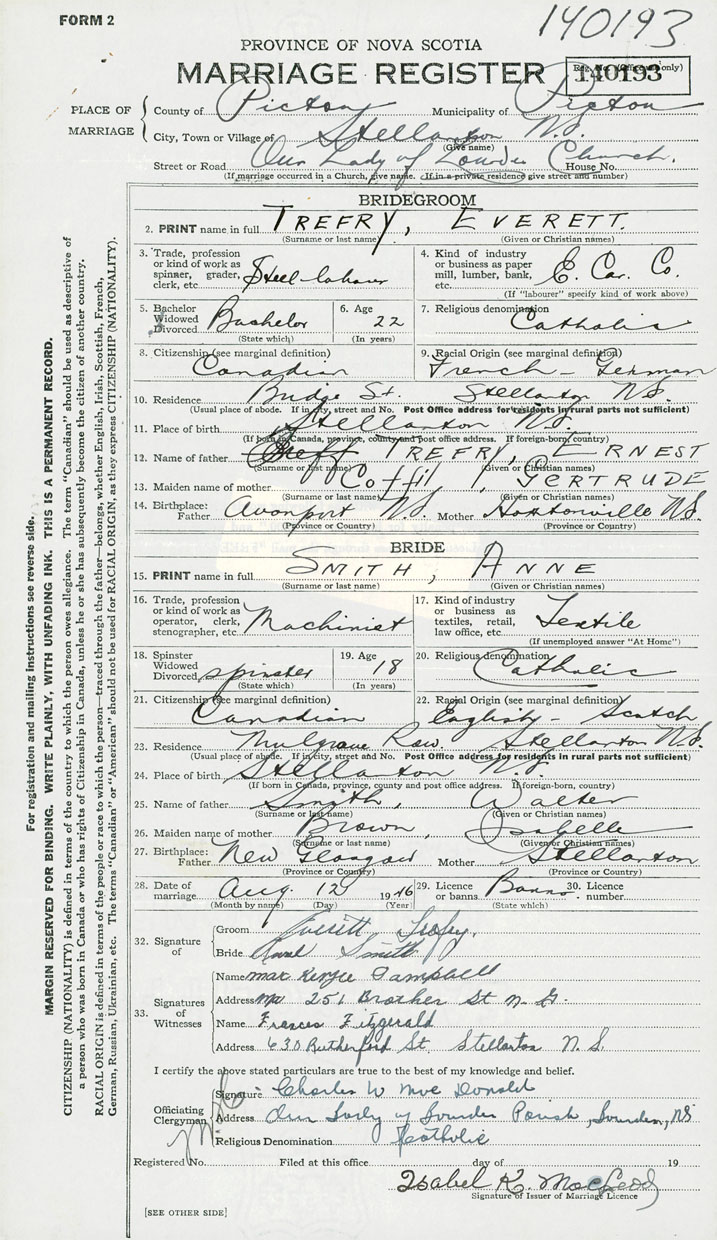 FORM 2
140193
PROVINCE OF NOVA SCOTIA
MARRIAGE REGISTER
Reg. No. (Office use only)
140193
PLACE OF MARRIAGE
County of Pictou Municipality of Pictou
City, Town or Village of Stellarton N.S.
(Give name)
Street or Road Our Lady of Lourdes Church. House No.
(If marriage occurred in a Church, give name. If in a private residence give street and number)
BRIDEGROOM
2. PRINT name in full TREFRY, EVERETT.
(Surname or last name) (Given or Christian names)
3. Trade, profession or kind of work as spinner, grader, clerk, etc. Steel-labour
4. Kind of industry or business as paper mill, lumber, bank, etc. E. Car. Co.
(If "labourer" specify kind of work above)
5. Bachelor Widowed Divorced Bachelor
(State which)
6. Age 22
(In years)
7. Religious denomination Catholic
8. Citizenship (see marginal definition) Canadian
9. Racial Origin (see marginal definition) French - German
10. Residence Bridge St. Stellarton N.S.
(Usual place of abode. If in city, street and No. Post Office address for residents in rural parts not sufficient)
11. Place of birth Stellarton N.S.
(If born in Canada, province, county and post office address. If foreign-born, country)
12. Name of father TREFRY, ERNEST
(Surname or last name) (Given or Christian names)
13. Maiden name of mother Coffil, GERTRUDE
(Surname or last name) (Given or Christian names)
14. Birthplace: Father Avonport N.S. Mother Hortonville N.S.
(Province or Country) (Province or Country)
BRIDE
15. PRINT name in full SMITH, ANNE
(Surname or last name) (Given or Christian names)
16. Trade, profession or kind of work as operator, clerk, stenographer, etc. Machinist
17. Kind of industry or business as textiles, retail, law office, etc. Textile
(If unemployed answer "At Home")
18. Spinster Widowed Divorced spinster
(State which)
19. Age 18
(In years)
20. Religious denomination Catholic
21. Citizenship (see marginal definition) Canadian
22. Racial Origin (see marginal definition) English - Scotch
23. Residence Mulgrave Row. Stellarton N.S.
(Usual place of abode. If in city, street and No. Post Office address for residents in rural parts not sufficient)
24. Place of birth Stellarton N.S.
(If born in Canada, province, county and post office address. If foreign-born, country)
25. Name of father Smith, Walter
(Surname or last name) (Given or Christian names)
26. Maiden name of mother Brown, Isabelle
(Surname or last name) (Given or Christian names)
27. Birthplace: Father New Glasgow Mother Stellarton
(Province or Country) (Province or Country)
28. Date of marriage Aug. 12 1946
(Month by name) (Day) (Year)
29. Licence or banns Banns
(State which)
30. Licence number
32. Signature of
Groom Everitt Trefry.
Bride Smith
33. Signatures of Witnesses
Name Campbell
Address 251 Brother St N.G.
Name Frances Fitzgerald
Address 630 Rutherford St. Stellarton N.S.
I certify the above stated particulars are true to the best of my knowledge and belief.
Officiating Clergyman
Signature Charles W Mac Donald
Address Our Lady of Lourdes Parish, Lourdes, NS
Religious Denomination Catholic
Registered No. Filed at this office day of 19
Isabel K. MacLeod
Signature of Issuer of Marriage Licence
[SEE OTHER SIDE]
For registration and mailing instructions see reverse side.
MARGIN RESERVED FOR BINDING. WRITE PLAINLY, WITH UNFADING INK. THIS IS A PERMANENT RECORD.
CITIZENSHIP (NATIONALITY) is defined in terms of the country to which the person owes allegiance. The term "Canadian" should be used as descriptive of
a person who was born in Canada or who has rights of Citizenship in Canada, unless he or she has subsequently become the citizen of another country.
RACIAL ORIGIN is defined in terms of the people or race to which the person—traced through the father—belongs, whether English, Irish, Scottish, French,
German, Russian, Ukrainian, etc. The terms "Canadian" or "American" should not be used for RACIAL ORIGIN, as they express CITIZENSHIP (NATIONALITY).